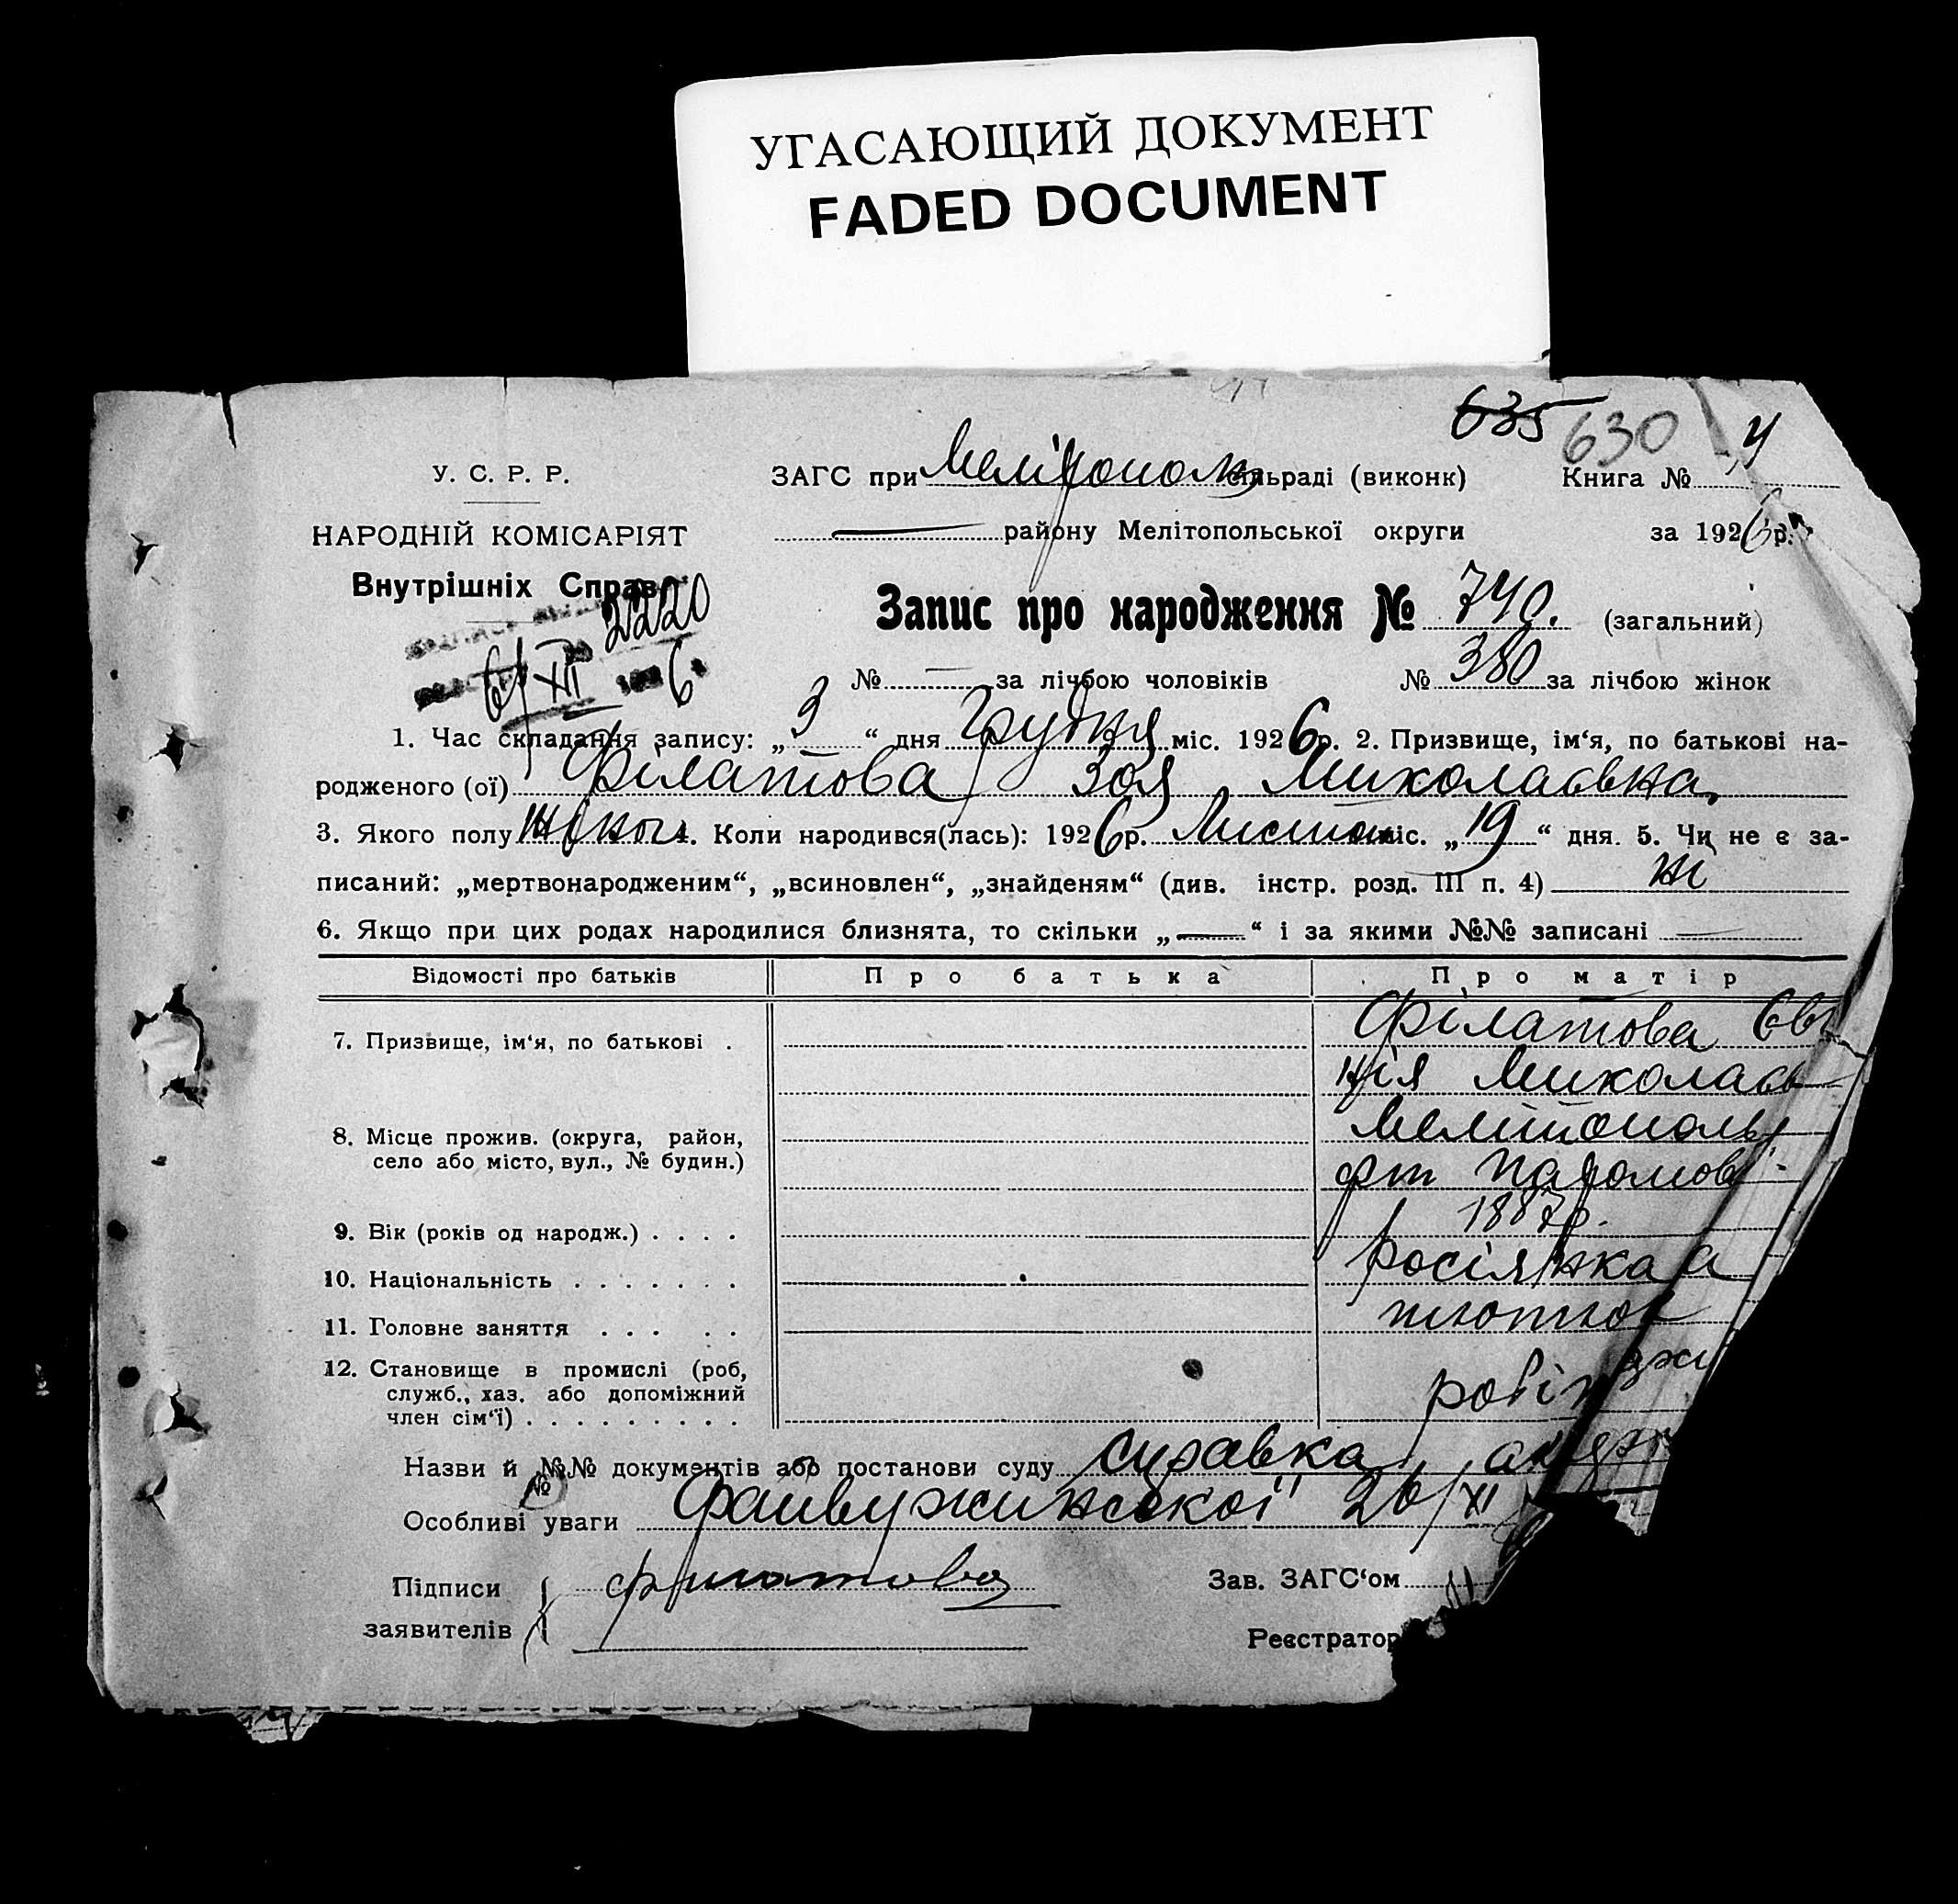 УГАСАЮЩИЙ ДОКУМЕНТ
FADED DOCUMENT
635 630
У. С. Р. Р. ЗАГС при Мелітополь сільраді (виконк) Книга № 4
НАРОДНІЙ КОМІСАРІЯТ — району Мелітопольської округи за 1926 р.
Внутрішніх Справ
2220
6/XII 6.
Запис про народження № 740. (загальний)
№ — за лічбою чоловіків № 380 за лічбою жінок
1. Час складання запису: „3“ дня Грудня міс. 1926 р. 2. Призвище, ім‘я, по батькові на-
родженого (ої) Філатова Зоя Миколаєвна,
3. Якого полу 4. Коли народився(лась): 1926 р. Листоп міс. „19“ дня. 5. Чи не є за-
писаний: „мертвонародженим“, „всиновлен“, „знайденям“ (див. інстр. розд. III п. 4) ні
6. Якщо при цих родах народилися близнята, то скільки „—“ і за якими №№ записані —
Відомості про батьків Про батька Про матір
7. Призвище, ім‘я, по батькові . Філатова Євг
нія Миколаєв
8. Місце прожив. (округа, район, Мелітополь
село або місто, вул., № будин.)
9. Вік (років од народж.) . . . . 1887р.
10. Національність . . . . . . . росіянка
11. Головне заняття . . . . .
12. Становище в промислі (роб,
служб., хаз. або допоміжний
член сім‘ї) . . . . . . . . .
Назви й №№ документів або постанови суду справка
№
Особливі уваги 26/XI
Підписи Филатова Зав. ЗАГС‘ом
заявителів Реєстратор